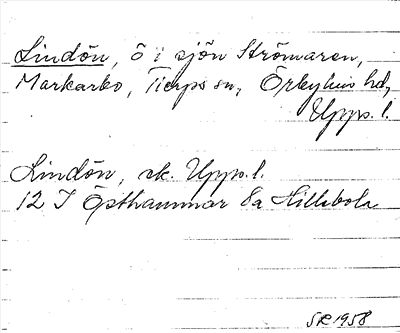 Lindön, ö i sjön Strömaren,
Markarbo, Tierps sn, Örbyhus hd,
Upps. l.
Lindön, ek. Upps. l.
12 I Östhammar 8a Hillebola
SR 1958